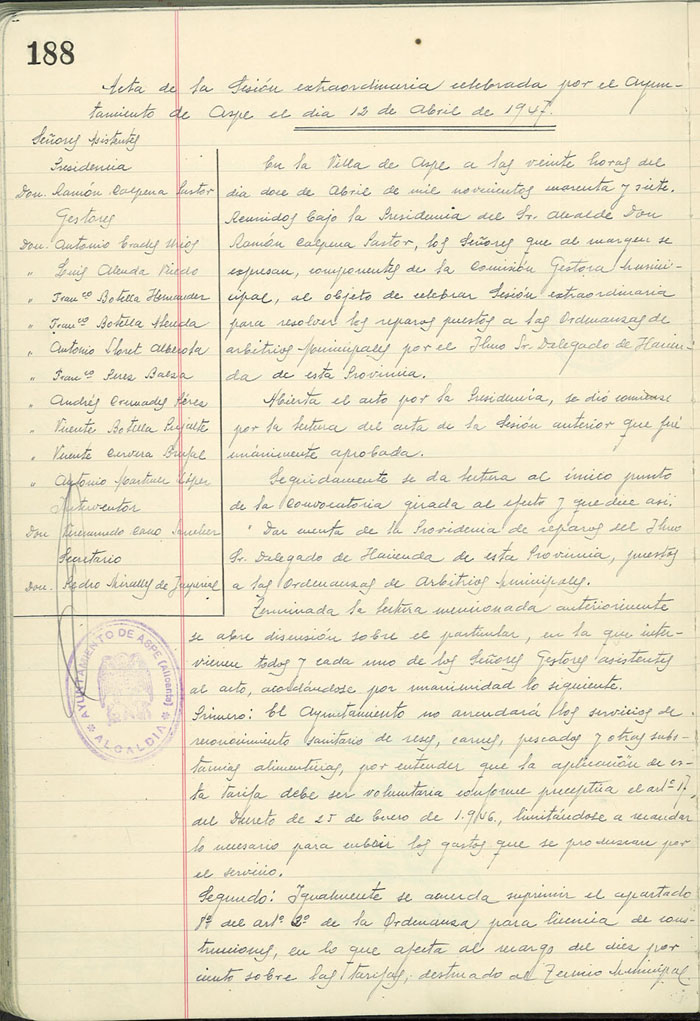 188
Acta de la Sesión extraordinaria celebrada por el Ayun-
tamiento de Aspe el dia 12 de Abril de 1947.
Señores Asistentes
Presidencia
Don. Ramón Calpena Pastor
Gestores
Don. Antonio
" Luis Almda
" Franco Botella Hernandez
" Franco Botella Almda
" Antonio Lloret Alberola
" Franco Perez Baeza
" Andrés Cremades Pérez
" Vicente Botella
" Vicente Cervera
" Antonio Martinez
Interventor
Don Cano Sanchez
Secretario
Don. Pedro Miralles de Imperial
En la Villa de Aspe a las veinte horas del
dia doce de Abril de mil novecientos cuarenta y siete.
Reunidos bajo la Presidencia del Sr. Alcalde Don
Ramón Calpena Pastor, los Señores que al margen se
expresan, componentes de la Comisión Gestora Munici-
cipal, al objeto de celebrar Sesión extraordinaria
para resolver los reparos puestos a las Ordenanzas de
arbitrios Municipales por el Ilmo Sr. Delegado de Hacien-
da de esta Provincia.
Abierta el acto por la Presidencia, se dió comienzo
por la lectura del acta de la Sesión anterior que fué
unánimente aprobada.
Seguidamente se da lectura al único punto
de la Convocatoria girada al efecto y que dice asi:
" Dar cuenta de la Providencia de reparos del Ilmo
Sr. Delegado de Hacienda de esta Provincia, puestos
a las Ordenanzas de Arbitrios Municipales.
Terminada la lectura mencionada anteriormente
se abre discusión sobre el particular, en la que inter-
vienen todos y cada uno de los Señores Gestores asistentes
al acto, acordándose por unanimidad lo siguiente.
Primero: El Ayuntamiento no arrendará los servicios de
reconocimiento sanitario de reses, carnes, pescados y otras subs-
tancias alimenticias, por entender que la aplicación de es-
ta tarifa debe ser voluntaria conforme preceptúa el artº 17,
del Decreto de 25 de Enero de 1.946, limitándose a recaudar
lo necesario para cubrir los gastos que se produzcan por
el servicio.
Segundo: Igualmente se acuerda suprimir el apartado
8º del artº 2º de la Ordenanza para licencia de cons-
trucciones, en lo que afecta al recargo del diez por
ciento sobre las tarifas, destinado al Tesoro Municipal
AYUNTAMIENTO DE ASPE (Alicante)
ALCALDIA